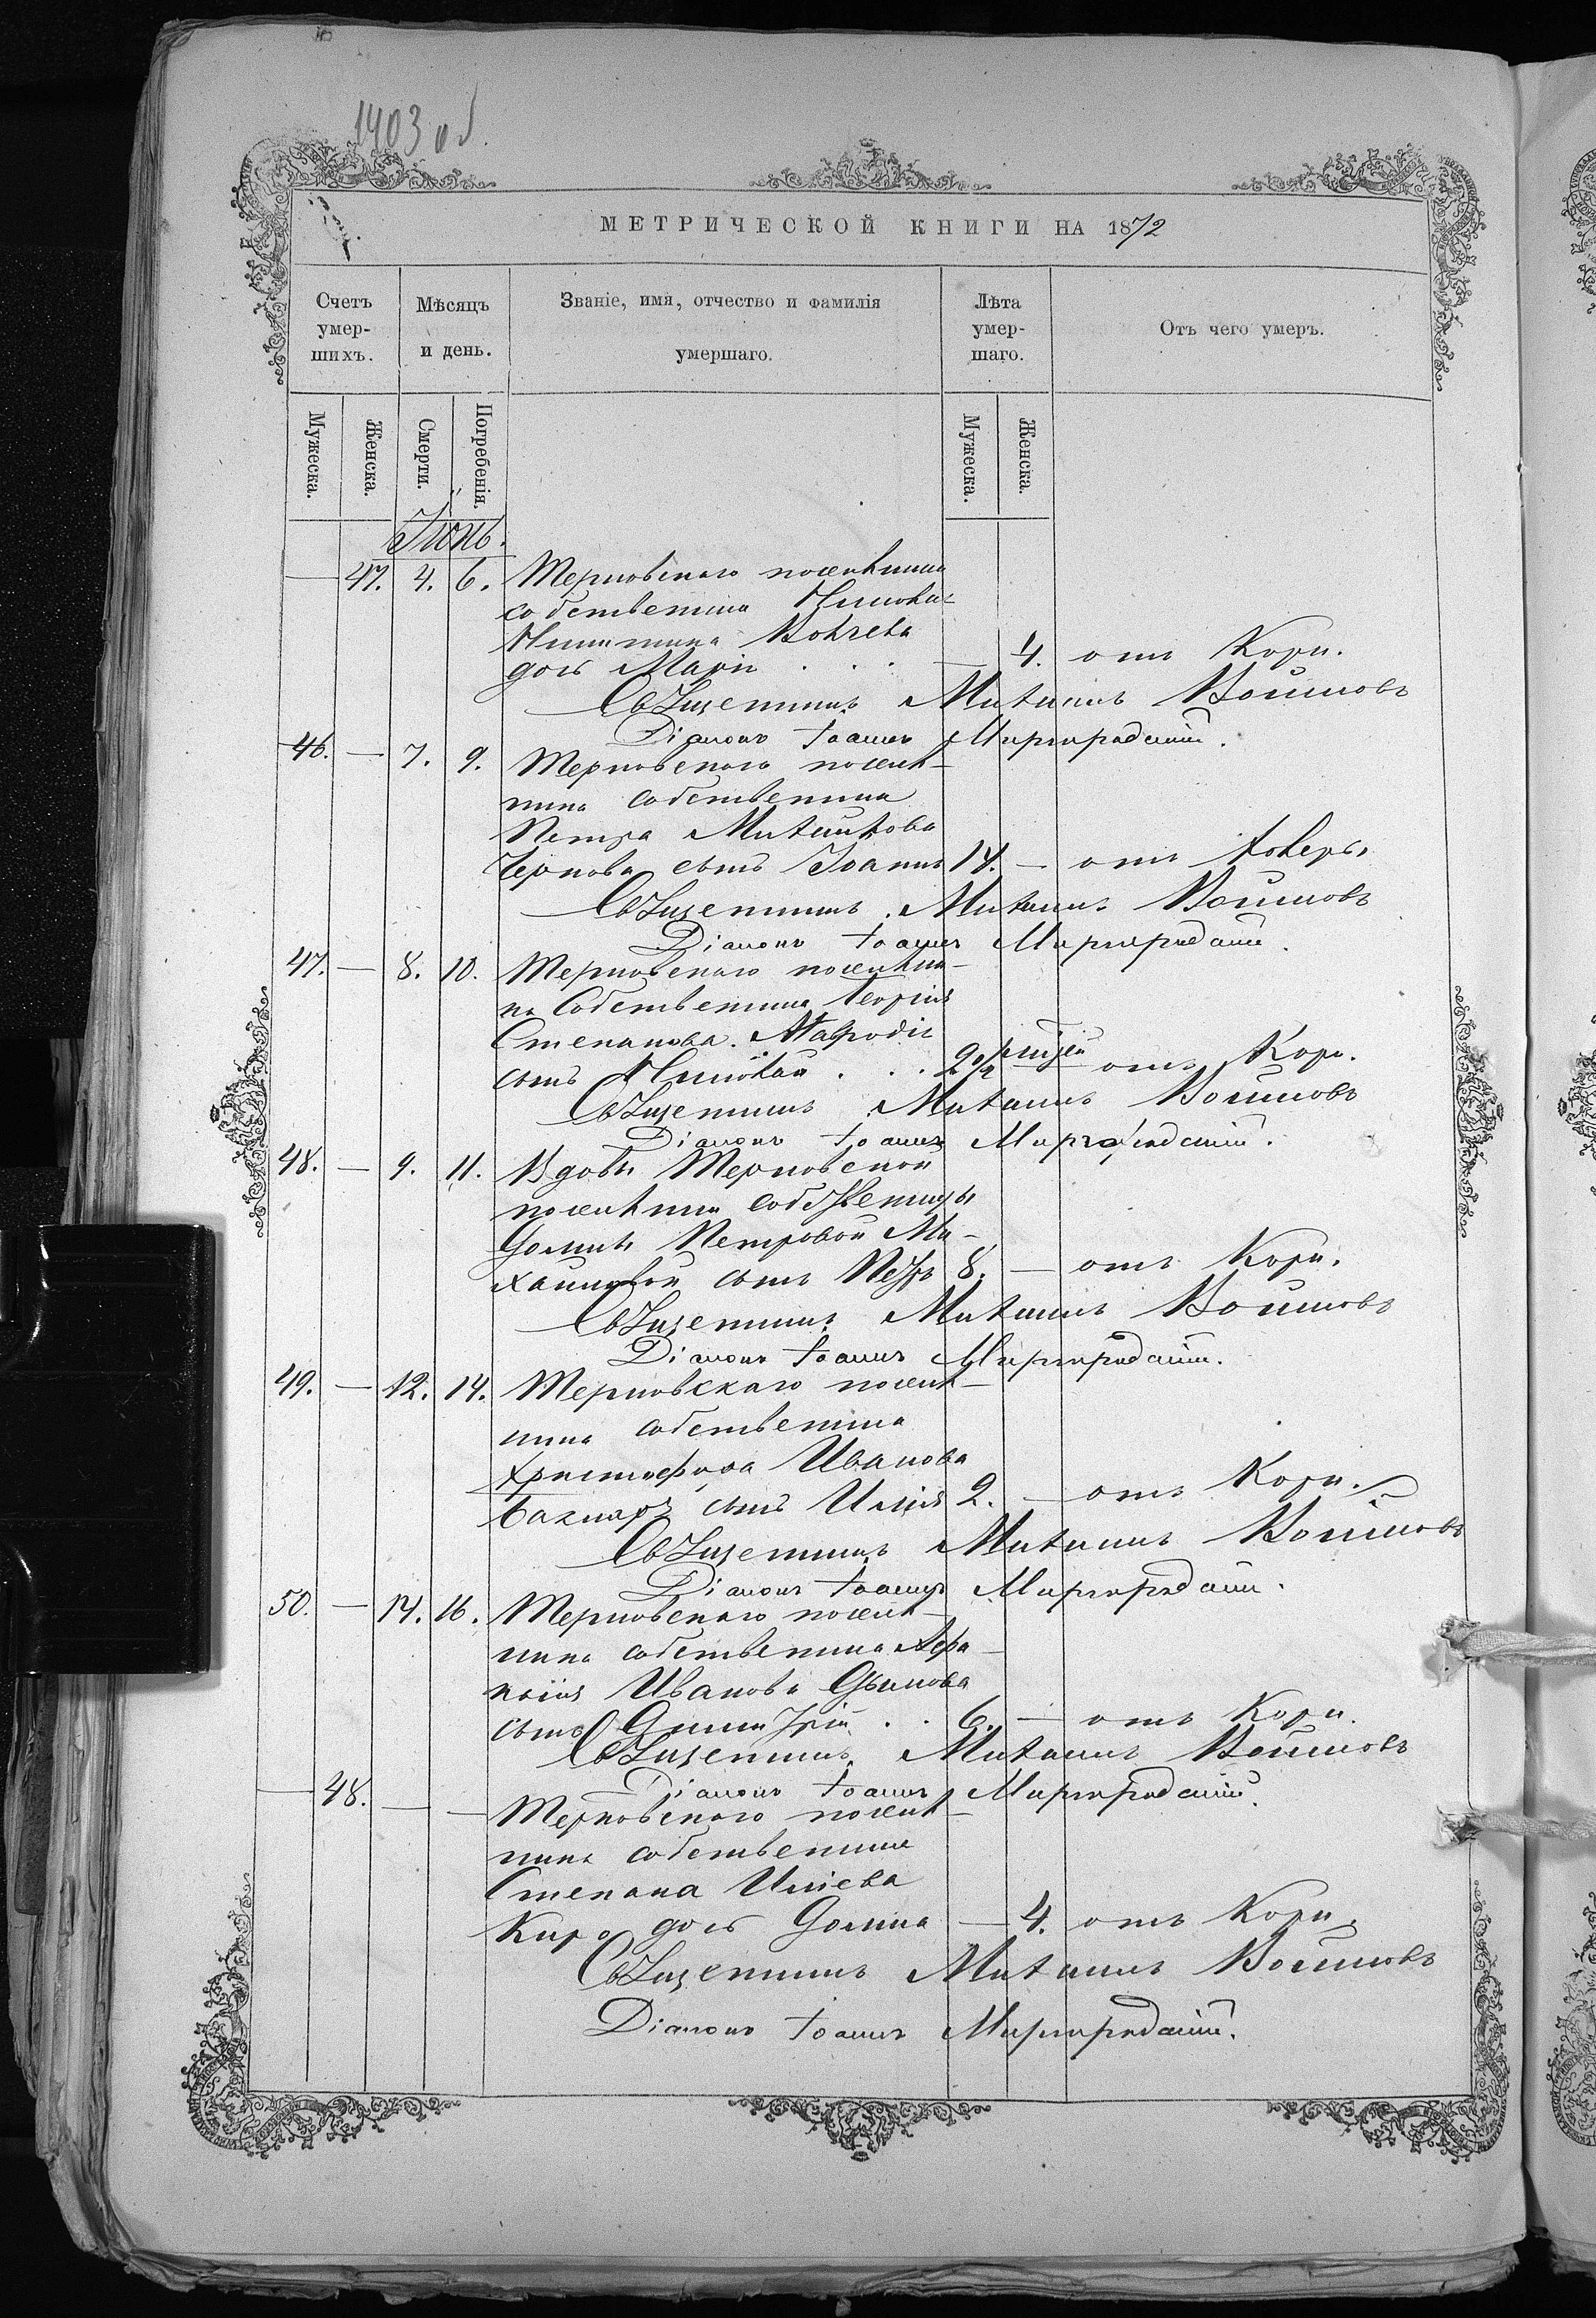 1403 об.
МЕТРИЧЕСКОЙ КНИГИ НА 1872
Счетъ умер-шихъ.
Мѣсяцъ и день.
Званіе, имя, отчество и фамилія умершаго.
Лѣта умер-шаго.
Отъ чего умеръ.
Мужеска.
Женска.
Смерти.
Погребенія.
Мужеска.
Женска.
Іюнь.
— 47. 4. 6. Терновскаго поселянина
собственника Николая
дочь Марія . . . — 4. отъ Кори.
Священникъ Михаилъ Войновъ
Діаконъ Іоаннъ Миргородскій.
46. — 7. 9. Терновскаго поселя-
нина собственника
Петра Михайлова
Чернова сынъ Іоаннъ 14. — отъ холеры
Священникъ Михаилъ Войновъ
Діаконъ Іоаннъ Миргородскій.
47. — 8. 10. Терновскаго поселяни-
на Собственника Георгія
Степанова Мавродія
сынъ Николай . . . отъ Кори.
Священникъ Михаилъ Войновъ
Діаконъ Іоаннъ Миргородскій.
48. — 9. 11. Вдовы Терновской
поселянки собственницы
Домны Петровой Ми-
хайловой сынъ Петръ 8. — отъ Кори.
Священникъ Михаилъ Войновъ
Діаконъ Іоаннъ Миргородскій.
49. — 12. 14. Терновскаго поселя-
нина собственника
Христофора Иванова
сынъ Илія 2. — отъ Кори.
Священникъ Михаилъ Войновъ
Діаконъ Іоаннъ Миргородскій.
50. — 14. 16. Терновскаго поселя-
нина собственника
Иванова
сынъ Димитрій . . 6. — отъ Кори.
Священникъ Михаилъ Войновъ
Діаконъ Іоаннъ Миргородскій.
— 48. — — Терновскаго поселя-
нина собственника
Степана Иліева
Киро дочь Домна — 4. отъ Кори.
Священникъ Михаилъ Войновъ
Діаконъ Іоаннъ Миргородскій.